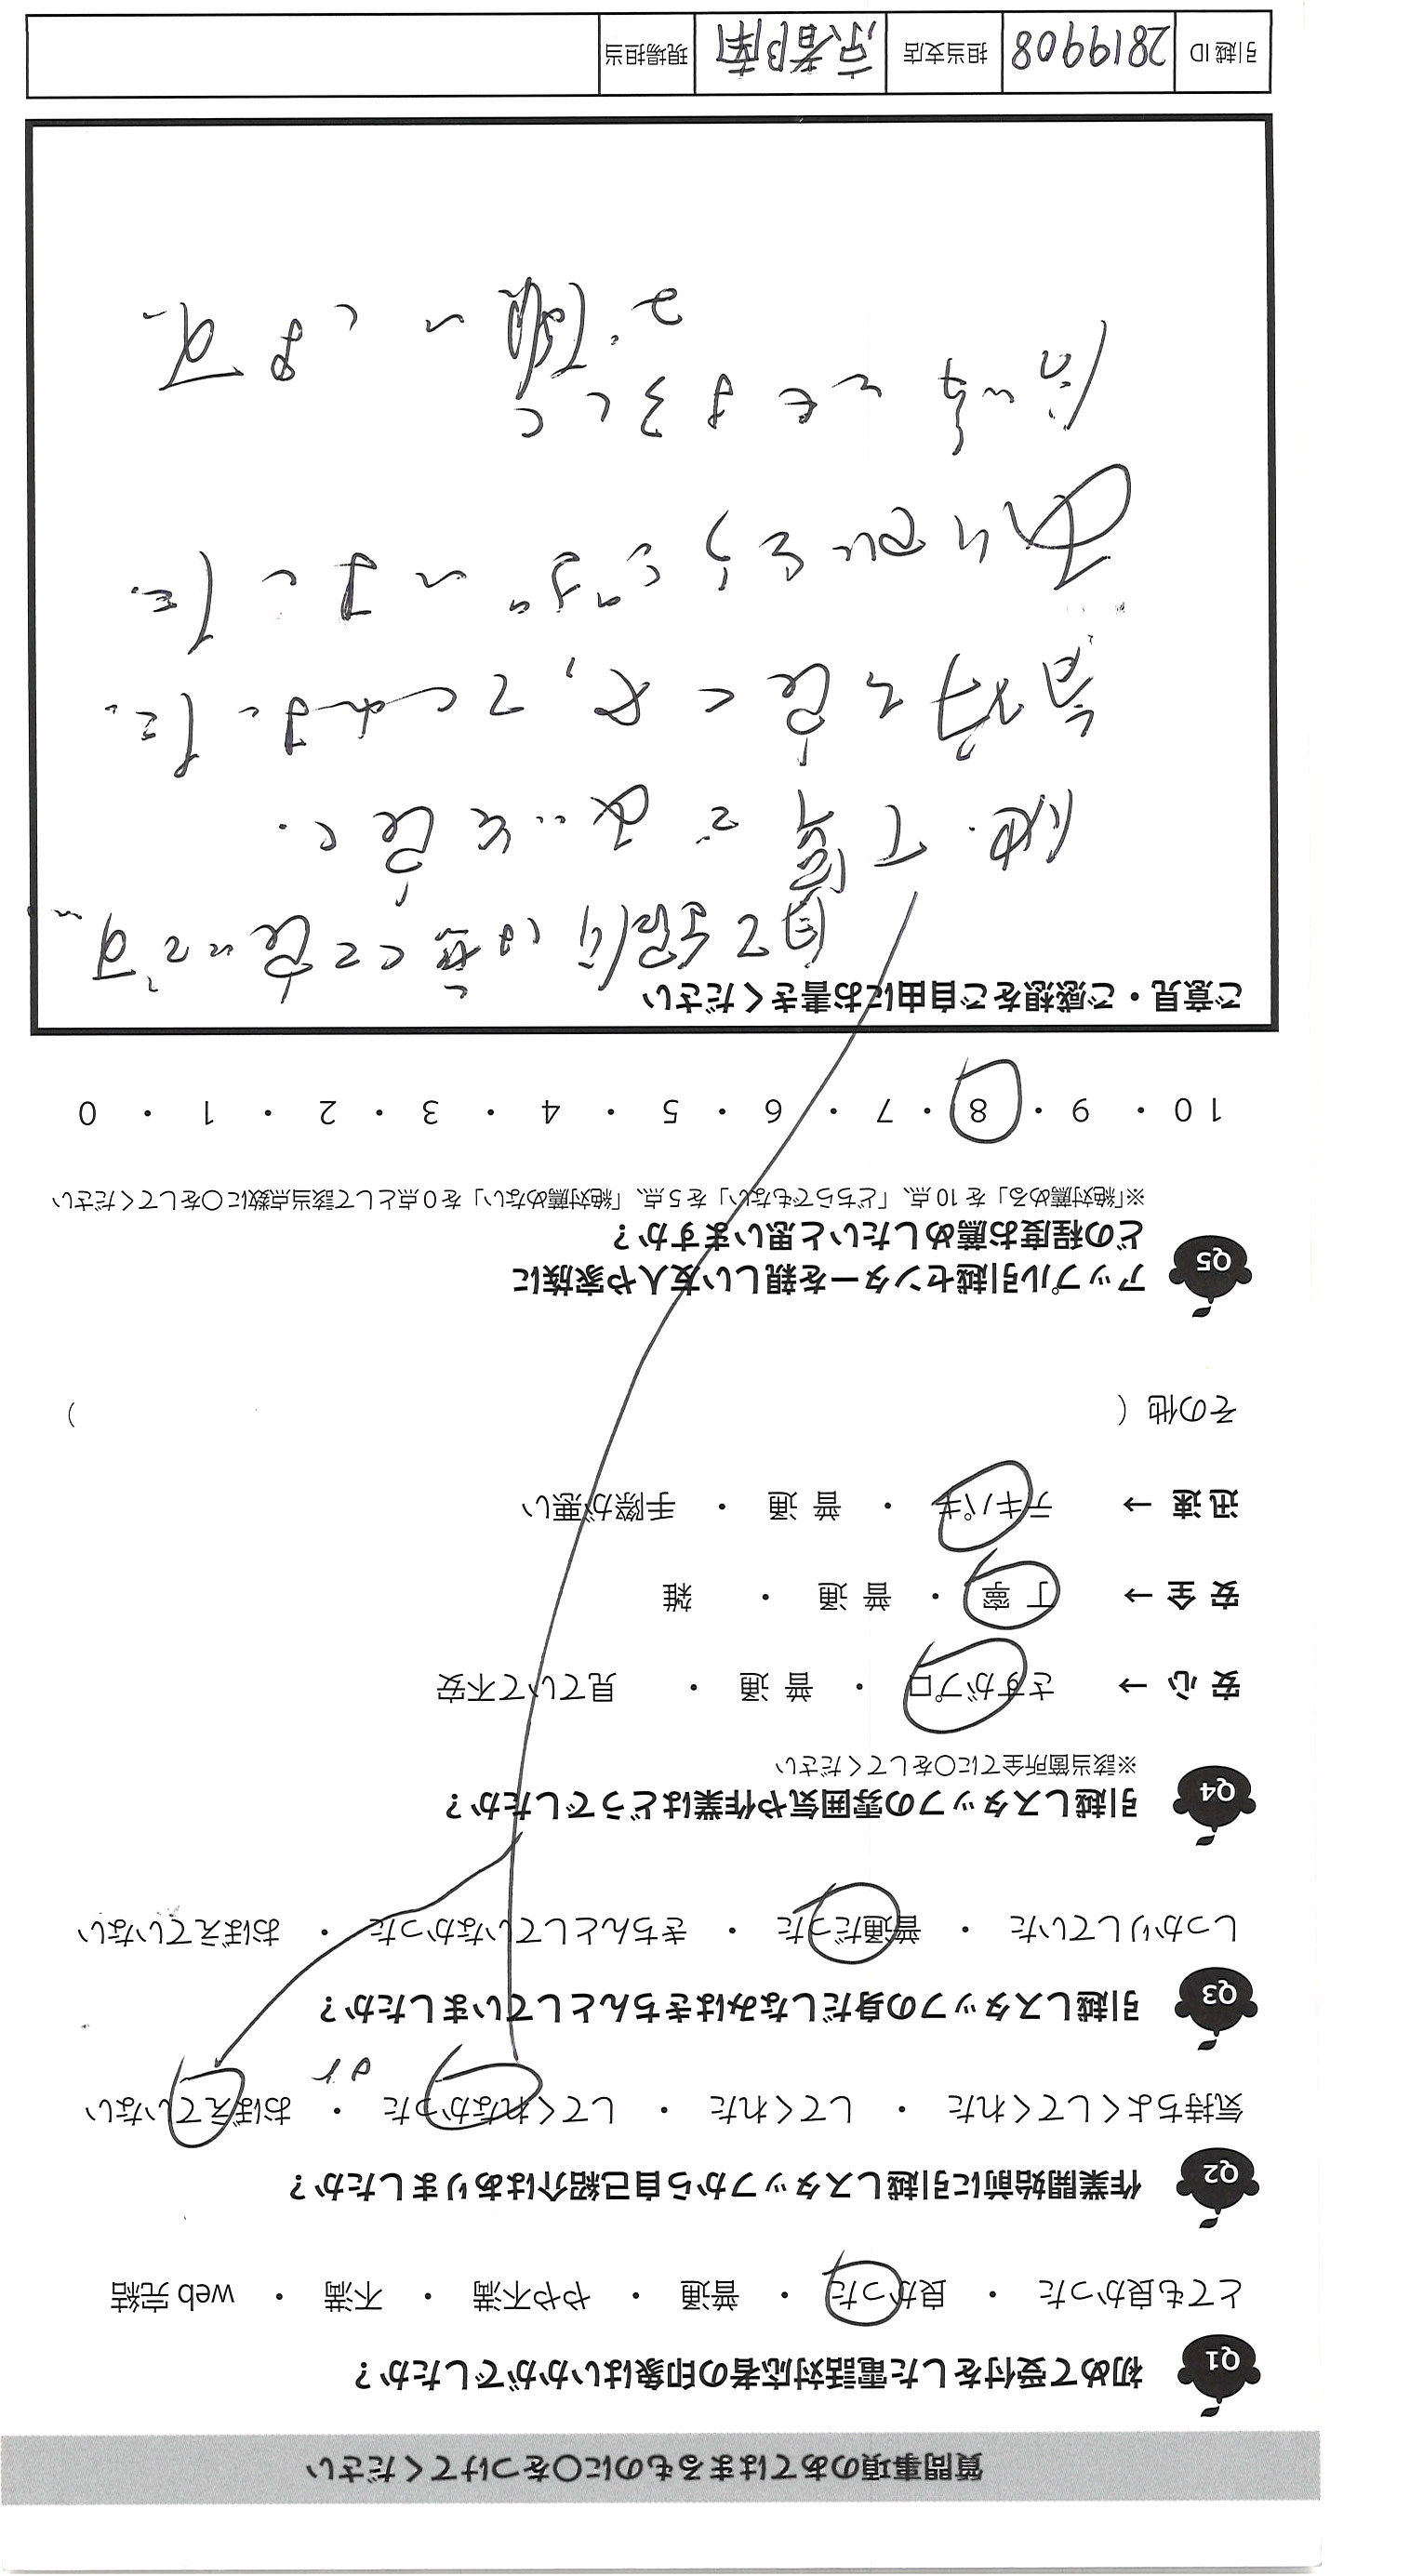 質問事項のあてはまるものに〇をつけてください
Q1 初めて受付をした電話対応者の印象はいかがでしたか？
とても良かった ・ 良かった ・ 普通 ・ やや不満 ・ 不満 ・ web 完結
Q2 作業開始前に引越しスタッフから自己紹介はありましたか？
気持ちよくしてくれた ・ してくれた ・ してくれなかった ・ おぼえていない
or
Q3 引越しスタッフの身だしなみはきちんとしていましたか？
しっかりしていた ・ 普通だった ・ きちんとしていなかった ・ おぼえていない
Q4 引越しスタッフの雰囲気や作業はどうでしたか？
※該当箇所全てに〇をしてください
安 心 → さすがプロ ・ 普 通 ・ 見ていて不安
安 全 → 丁 寧 ・ 普 通 ・ 雑
迅 速 → テキパキ ・ 普 通 ・ 手際が悪い
その他（ ）
Q5 アップル引越センターを親しい友人や家族に
どの程度お薦めしたいと思いますか？
※「絶対薦める」を 10 点、「どちらでもない」を 5 点、「絶対薦めない」を 0 点として該当点数に〇をしてください
10 ・ 9 ・ 8 ・ 7 ・ 6 ・ 5 ・ 4 ・ 3 ・ 2 ・ 1 ・ 0
ご意見・ご感想をご自由にお書きください
自己紹介は無くて良いです
他、丁寧で
引越 ID 2819908 担当支店 京都南 現場担当